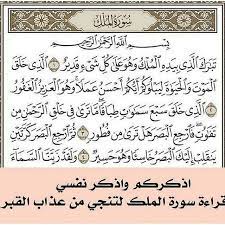 سُورَةُ المُلْكِ
بِسْمِ اللَّهِ الرَّحْمَٰنِ الرَّحِيمِ
تَبَٰرَكَ الَّذِي بِيَدِهِ الْمُلْكُ وَهُوَ عَلَىٰ كُلِّ شَيْءٍ قَدِيرٌ ١ الَّذِي خَلَقَ
الْمَوْتَ وَالْحَيَوٰةَ لِيَبْلُوَكُمْ أَيُّكُمْ أَحْسَنُ عَمَلًا وَهُوَ الْعَزِيزُ الْغَفُورُ ٢
الَّذِي خَلَقَ سَبْعَ سَمَٰوَٰتٍ طِبَاقًا مَّا تَرَىٰ فِي خَلْقِ الرَّحْمَٰنِ مِن
تَفَٰوُتٍ فَارْجِعِ الْبَصَرَ هَلْ تَرَىٰ مِن فُطُورٍ ٣ ثُمَّ ارْجِعِ الْبَصَرَ كَرَّتَيْنِ
يَنقَلِبْ إِلَيْكَ الْبَصَرُ خَاسِئًا وَهُوَ حَسِيرٌ ٤ وَلَقَدْ زَيَّنَّا السَّمَاءَ
اذكركم واذكر نفسي
قراءة سورة الملك لتنجي من عذاب القبر